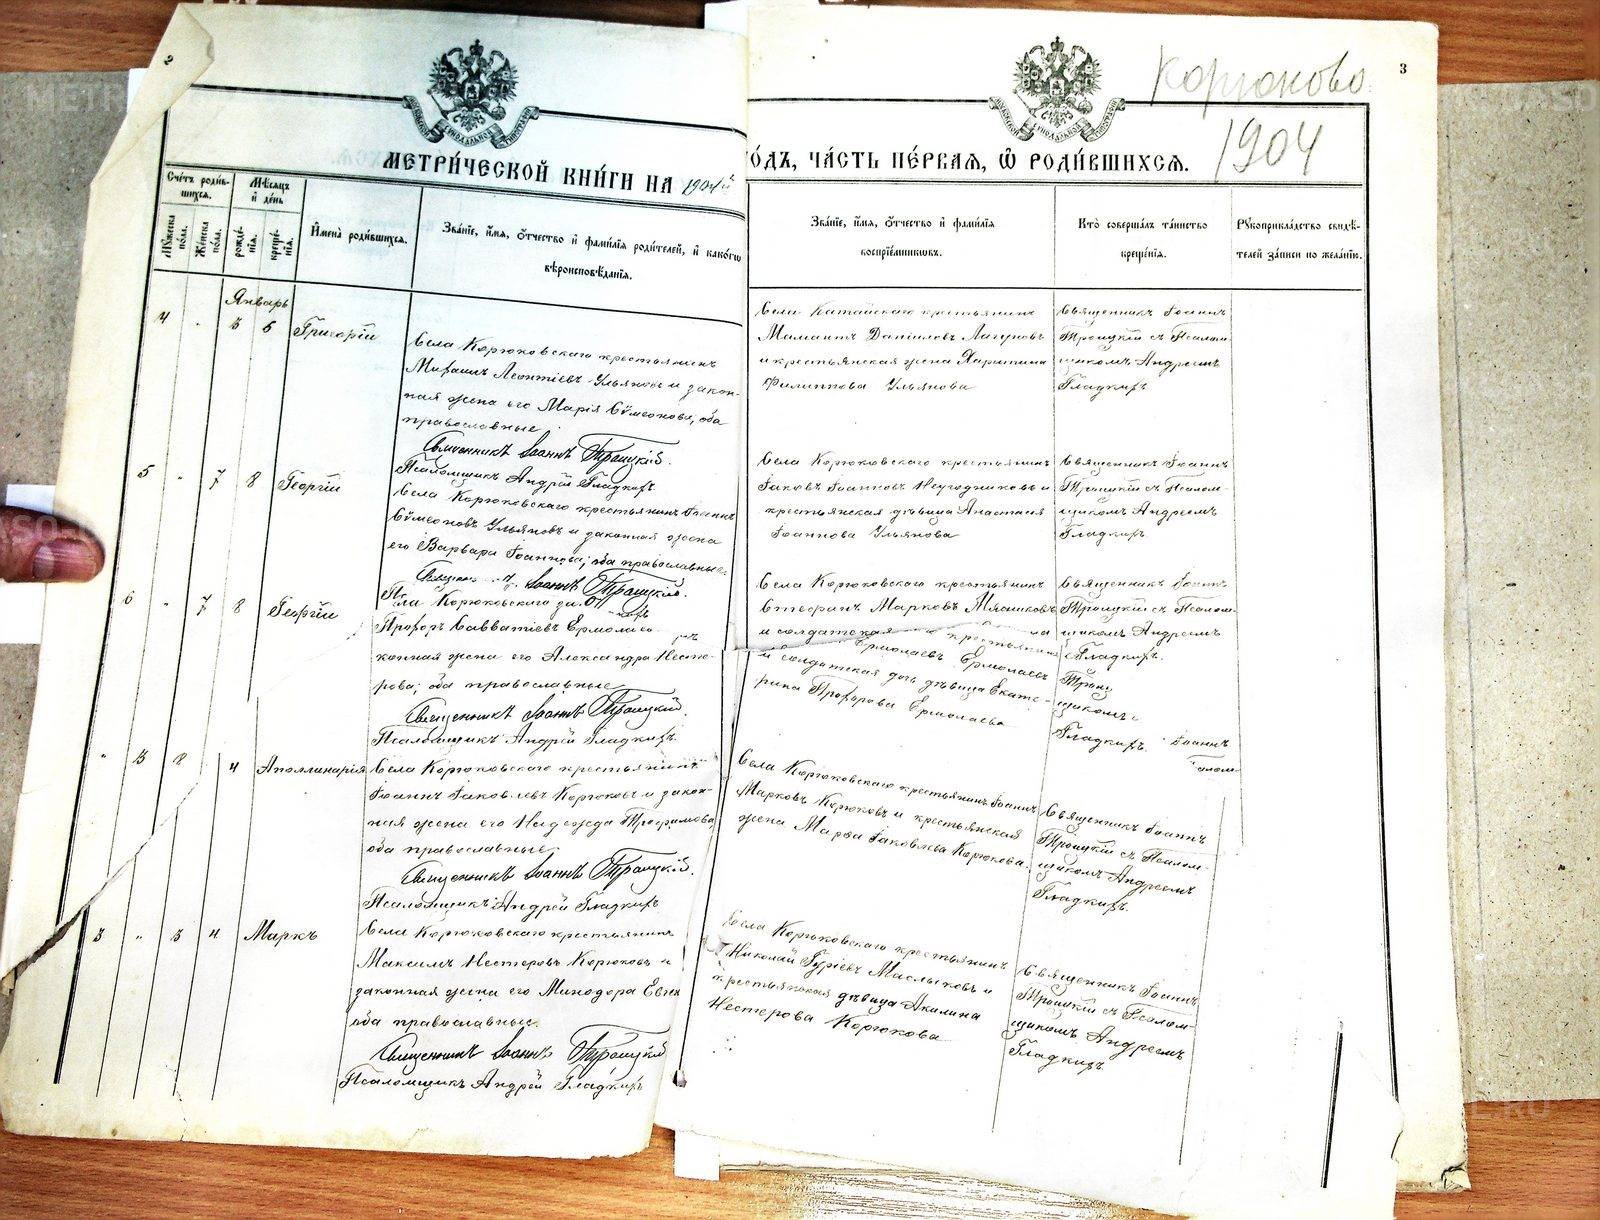 2
3
Корюково
1904
МЕТРИ́ЧЕСКОЙ КНИ́ГИ НА 1904й
О́ДЪ, ЧА́СТЬ ПЕ́РВАЯ, Ѽ РОДИ́ВШИХСЯ.
Сче́тъ роди́в-
шихся.
Му́жеска по́ла.
Же́нска по́ла.
Мѣ́сяцъ и де́нь
рожде́нїя.
креще́нїя.
Имена̀ роди́вшихся.
Зва́нїе, и́мя, о́тчество и фами́лїя роди́телей, и како́гѡ
вѣроисповѣ́данїя.
Зва́нїе, и́мя, о́тчество и фами́лїя
воспрїе́мниковъ.
Кто̀ соверша́лъ та́инство
креще́нїя.
Рукоприкла́дство свидѣ́-
телей за́писи по жела́нїю.
Январь
4 " 5 6 Григорій
Села Корюковскаго крестьянинъ
Леонтіевъ Ульяновъ и закон-
ная жена его Марія Сѵмеонова, оба
православные
Священникъ Іоаннъ Троицкій.
Псаломщикъ Андрей Гладкихъ.
Села Катайскаго крестьянинъ
Мамантъ Даніиловъ
и крестьянская жена Харитина
Филиппова Ульянова
Священникъ Іоаннъ
Троицкій съ Псалом-
щикомъ Андреемъ
Гладкихъ
5 " 7 8 Георгій
Села Корюковскаго крестьянинъ Іоаннъ
Сѵмеоновъ Ульяновъ и законная жена
его Варвара Іоаннова; оба православные.
Іоаннъ Троицкій.
Села Корюковскаго крестьянинъ
Іаковъ Іоанновъ Неугодниковъ и
крестьянская дѣвица Анастасія
Іоаннова Ульянова
Священникъ Іоаннъ
Троицкій съ Псалом-
щикомъ Андреемъ
Гладкихъ
6 " 7 8 Георгій
Корюковскаго
Прохоръ Савватіевъ
конная жена его Александра Несто-
рова; оба православные
Священникъ Іоаннъ Троицкій.
Псаломщикъ Андрей Гладкихъ.
Села Корюковскаго крестьянинъ
Марковъ
и солдатская
Ермолаевъ Ермолаевъ
и солдатская дочь дѣвица Екате-
рина Прохорова Ермолаева
Священникъ Іоаннъ
Троицкій съ Псалом-
щикомъ Андреемъ
Гладкихъ.
щикомъ
Гладкихъ. Іоаннъ
" 3 2 4 Аполлинарія
Села Корюковскаго крестьянинъ
Іоаннъ Іаковлевъ Корюковъ и закон-
ная жена его Надежда Трофимова,
оба православные
Священникъ Іоаннъ Троицкій.
Псаломщикъ Андрей Гладкихъ
Села Корюковскаго крестьянинъ Іоаннъ
Марковъ Корюковъ и крестьянская
жена Марѳа Іаковлева Корюкова.
Священникъ Іоаннъ
Троицкій съ Псалом-
щикомъ Андреемъ
Гладкихъ.
3 " 3 4 Маркъ
Села Корюковскаго крестьянинъ
Максимъ Нестеровъ Корюковъ и
законная жена его Минодора
оба православные.
Священникъ Іоаннъ Троицкій
Псаломщикъ Андрей Гладкихъ
Села Корюковскаго крестьянинъ
Николай Гуріевъ Маслыковъ и
крестьянская дѣвица Акилина
Нестерова Корюкова
Священникъ Іоаннъ
Троицкій съ Псалом-
щикомъ Андреемъ
Гладкихъ.